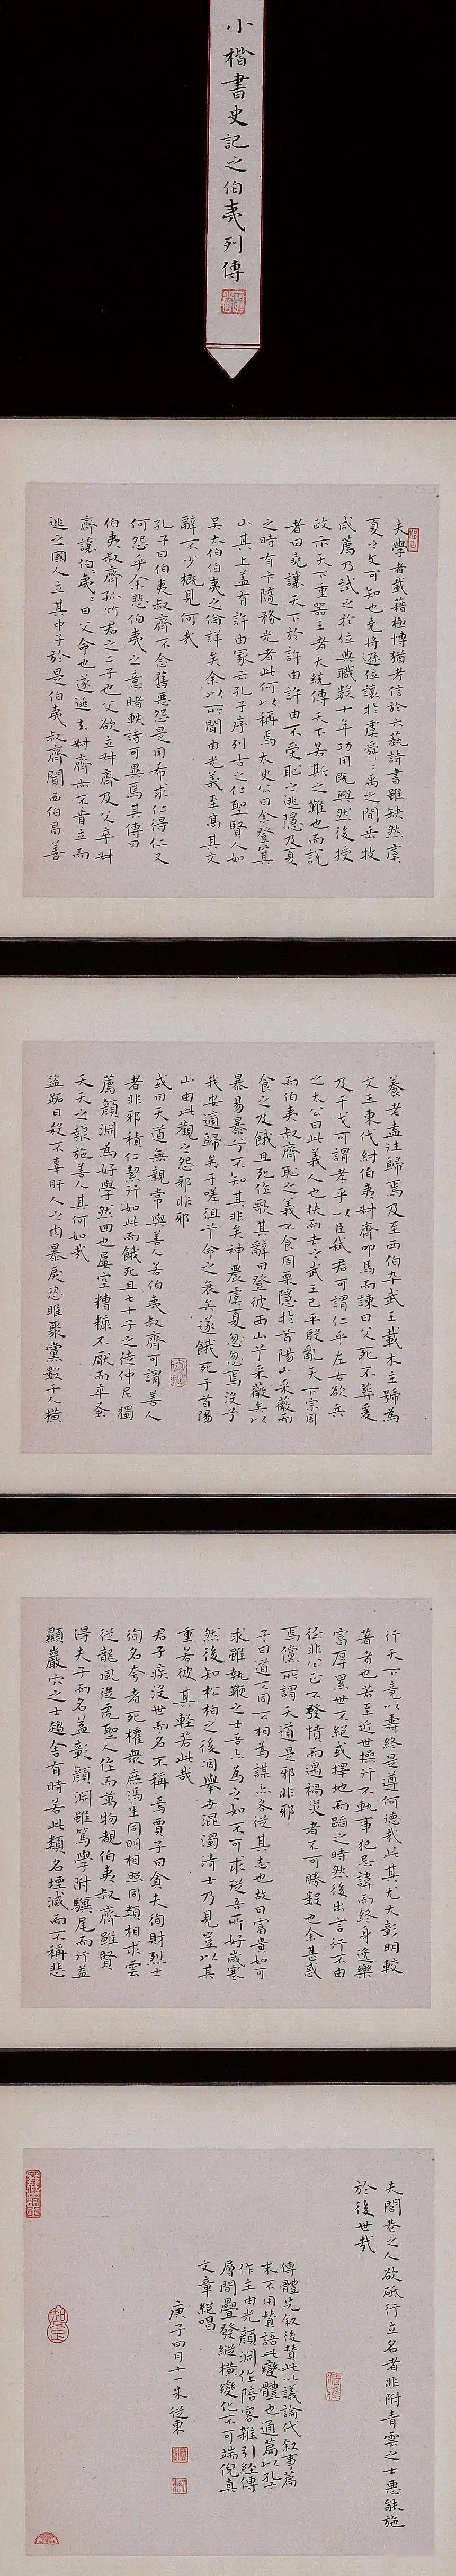 小楷書史記之伯夷列傳
夫學者載籍極博猶考信於六藝詩書雖缺然虞
夏之文可知也堯將遜位讓於虞舜舜禹之間岳牧
咸薦乃試之於位典職數十年功用既興然後授
政示天下重器王者大統傳天下若斯之難也而說
者曰堯讓天下於許由許由不受恥之逃隱及夏
之時有卞隨務光者此何以稱焉太史公曰余登箕
山其上蓋有許由冢云孔子序列古之仁聖賢人如
吳太伯伯夷之倫詳矣余以所聞由光義至高其文
辭不少概見何哉
孔子曰伯夷叔齊不念舊惡怨是用希求仁得仁又
何怨乎余悲伯夷之意睹軼詩可異焉其傳曰
伯夷叔齊孤竹君之二子也父欲立叔齊及父卒叔
齊讓伯夷夷曰父命也遂逃去叔齊亦不肯立而
逃之國人立其中子於是伯夷叔齊聞西伯昌善
養老盍往歸焉及至西伯卒武王載木主號為
文王東伐紂伯夷叔齊叩馬而諫曰父死不葬爰
及干戈可謂孝乎以臣弒君可謂仁乎左右欲兵
之太公曰此義人也扶而去之武王已平殷亂天下宗周
而伯夷叔齊恥之義不食周粟隱於首陽山采薇而
食之及餓且死作歌其辭曰登彼西山兮采薇矣以
暴易暴兮不知其非矣神農虞夏忽焉沒兮
我安適歸矣于嗟徂兮命之衰矣遂餓死于首陽
山由此觀之怨邪非邪
或曰天道無親常與善人若伯夷叔齊可謂善人
者非邪積仁絜行如此而餓死且七十子之徒仲尼獨
薦顏淵為好學然回也屢空糟糠不厭而卒蚤
夭天之報施善人其何如哉
盜跖日殺不辜肝人之肉暴戾恣睢聚黨數千人橫
行天下竟以壽終是遵何德哉此其尤大彰明較
著者也若至近世操行不軌事犯忌諱而終身逸樂
富厚累世不絕或擇地而蹈之時然後出言行不由
徑非公正不發憤而遇禍災者不可勝數也余甚惑
焉儻所謂天道是邪非邪
子曰道不同不相為謀亦各從其志也故曰富貴如可
求雖執鞭之士吾亦為之如不可求從吾所好歲寒
然後知松柏之後凋舉世混濁清士乃見豈以其
重若彼其輕若此哉
君子疾沒世而名不稱焉賈子曰貪夫徇財烈士
徇名夸者死權衆庶馮生同明相照同類相求雲
從龍風從虎聖人作而萬物覩伯夷叔齊雖賢
得夫子而名益彰顏淵雖篤學附驥尾而行益
顯巖穴之士趨舍有時若此類名堙滅而不稱悲
夫閭巷之人欲砥行立名者非附青雲之士惡能施
於後世哉
傳體先叙後贊此以議論代叙事篇
末不用贊語此變體也通篇以孔子
作主由光顏淵作陪客雜引經傳
層間疊發縱橫變化不可端倪真
文章絕唱
庚子四月十一朱從東